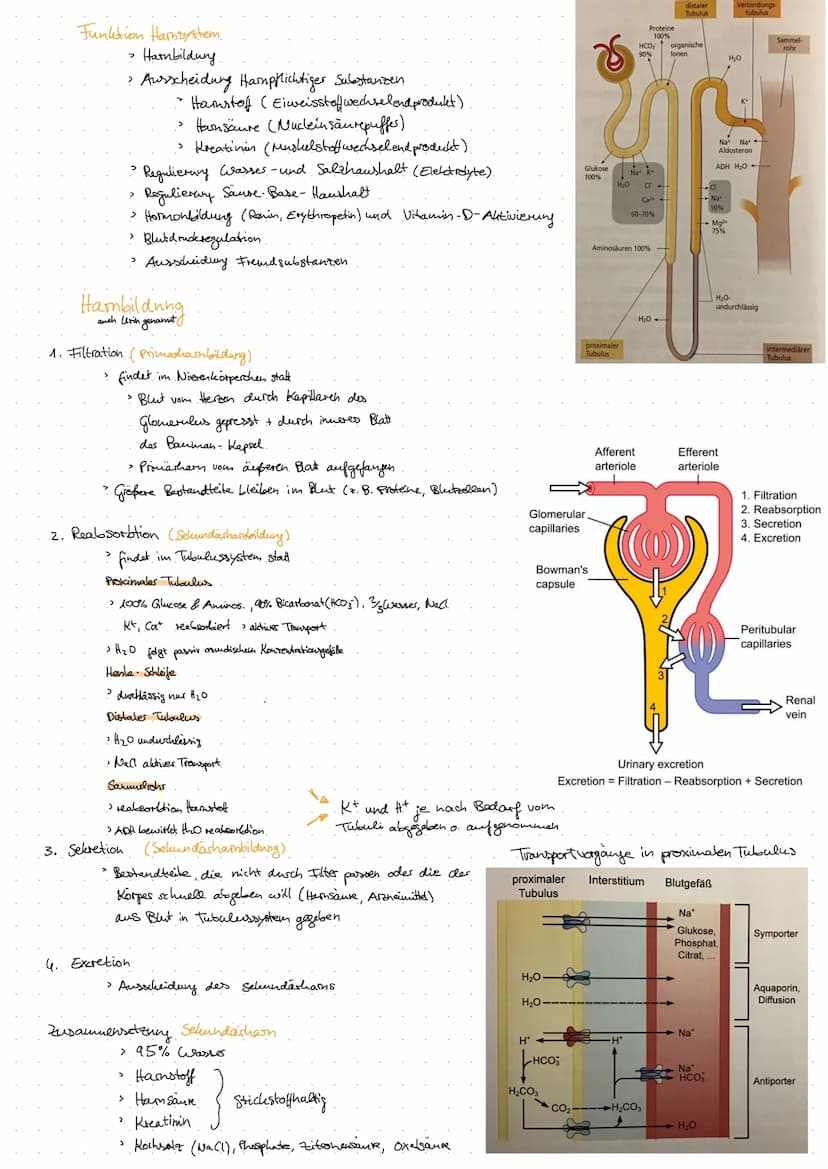 Funktion Harnsystem
> Harnbildung
> Ausscheidung Harnpflichtiger Substanzen
> Harnstoff (Eiweisstoffwechselendprodukt)
> Harnsäure (Nucleinsäurepuffer)
> Kreatinin (Muskelstoffwechselendprodukt)
> Regulierung Wasser- und Salzhaushalt (Elektrolyte)
> Regulierung Säure-Base-Haushalt
> Hormonbildung (Renin, Erythropetin) und Vitamin-D-Aktivierung
> Blutdruckregulation
> Ausscheidung Fremdsubstanzen
distaler Tubulus
Verbindungs-
tubulus
Proteine
100%
HCO3-
90%
organische
Ionen
Sammel-
rohr
H2O
K+
Na+ Na+
Aldosteron
ADH H2O
Glukose
100%
Na+ K+
H2O Cl-
Ca2+
60-70%
Cl-
Na+
10%
Mg2+
75%
Aminosäuren 100%
H2O-
undurchlässig
H2O
proximaler
Tubulus
intermediärer
Tubulus
Harnbildung
auch Urin genannt
1. Filtration (Primärharnbildung)
> findet im Nierenkörperchen statt
> Blut vom Herzen durch Kapillaren des
Glomerulus gepresst + durch inneres Blatt
der Bauman-Kapsel
> Primärharn vom äußeren Blatt aufgefangen
> Größere Bestandteile bleiben im Blut (z.B. Proteine, Blutzellen)
2. Reabsorbtion (Sekundärharnbildung)
> findet im Tubulussystem statt
Proximaler Tubulus
> 100% Glucose & Aminos., 90% Bicarbonat (HCO3-), 2/3 Wasser, NaCl
K+, Ca+ reabsorbiert > aktiver Transport
> H2O folgt passiv osmotischem Konzentrationsgefälle
Henle-Schleife
> durchlässig nur H2O
Distaler Tubulus
> H2O undurchlässig
> NaCl aktiver Transport
Sammelrohr
> reabsorbtion Harnstoff
> ADH bewirkt H2O reabsorbtion
K+ und H+ je nach Bedarf vom
Tubuli abgegeben o. aufgenommen
Afferent
arteriole
Efferent
arteriole
1. Filtration
2. Reabsorption
3. Secretion
4. Excretion
Glomerular
capillaries
Bowman's
capsule
1
2
3
4
Peritubular
capillaries
Renal
vein
Urinary excretion
Excretion = Filtration – Reabsorption + Secretion
3. Sekretion (Sekundärharnbildung)
> Bestandteile, die nicht durch Filter passen oder die der
Körper schnell abgeben will (Harnsäure, Arzneimittel)
aus Blut in Tubulussystem gegeben
4. Excretion
> Ausscheidung des Sekundärharns
Zusammensetzung Sekundärharn
> 95% Wasser
> Harnstoff
> Harnsäure
> Kreatinin
Stickstoffhaltig
> Kochsalz (NaCl), Phosphate, Zitronensäure, Oxalsäure
Transportvorgänge in proximalen Tubulus
proximaler
Tubulus
Interstitium
Blutgefäß
Na+
Glukose,
Phosphat,
Citrat, ...
Symporter
H2O
H2O
Aquaporin,
Diffusion
H+ H+ Na+
HCO3-
Na+
HCO3-
Antiporter
H2CO3
CO2 H2CO3
H2O